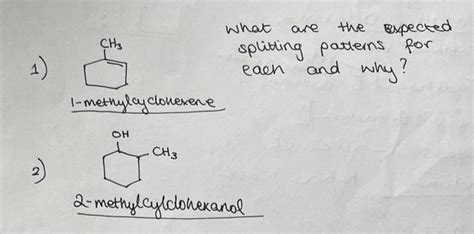 What are the expected
splitting patterns for
each and why?
1)
CH3
1-methylcyclohexene
2)
OH
CH3
2-methylcylclohexanol